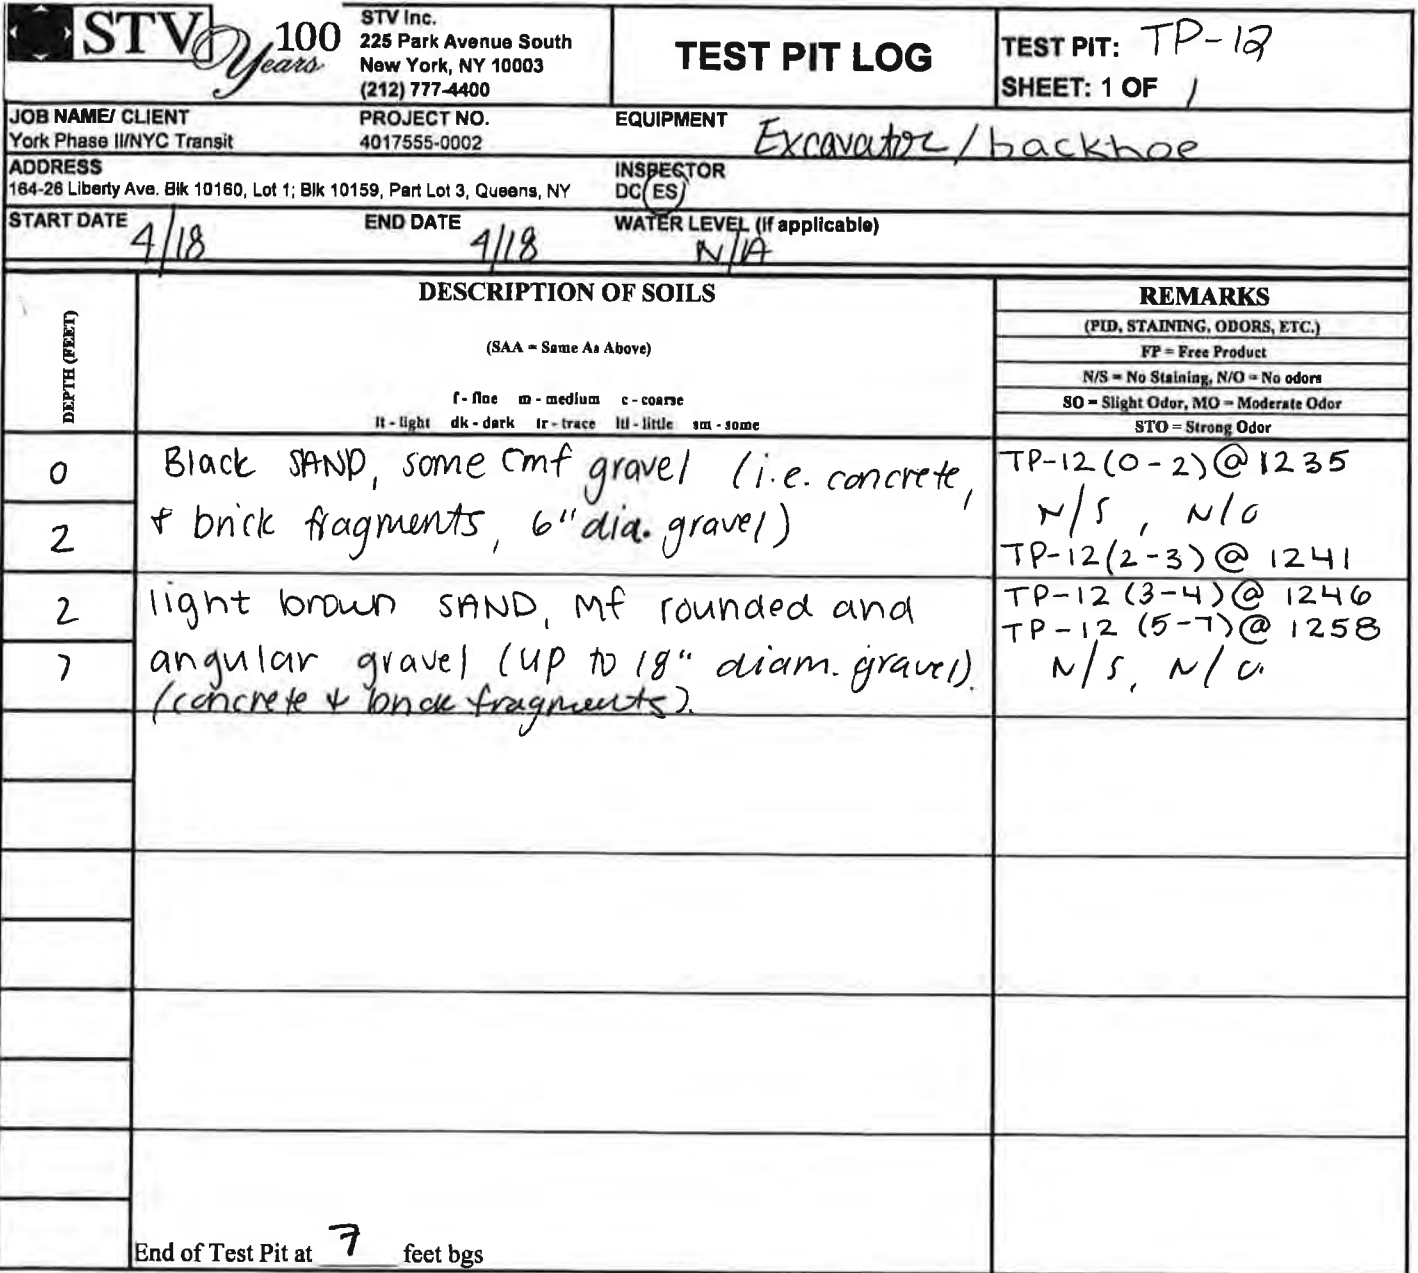 STV 100 Years
STV Inc.
225 Park Avenue South
New York, NY 10003
(212) 777-4400
TEST PIT LOG
TEST PIT: TP-12
SHEET: 1 OF 1
JOB NAME/ CLIENT
York Phase II/NYC Transit
PROJECT NO.
4017555-0002
EQUIPMENT Excavator/backhoe
ADDRESS
164-26 Liberty Ave. Blk 10160, Lot 1; Blk 10159, Part Lot 3, Queens, NY
INSPECTOR
DC ES
START DATE 4/18
END DATE 4/18
WATER LEVEL (if applicable)
N/A
DEPTH (FEET)
DESCRIPTION OF SOILS
(SAA = Same As Above)
f - fine m - medium c - coarse
lt - light dk - dark tr - trace ltl - little sm - some
REMARKS
(PID, STAINING, ODORS, ETC.)
FP = Free Product
N/S = No Staining, N/O = No odors
SO = Slight Odor, MO = Moderate Odor
STO = Strong Odor
0
2
Black SAND, some cmf gravel (i.e. concrete,
+ brick fragments, 6" dia. gravel)
TP-12 (0-2) @ 1235
N/S, N/O
TP-12 (2-3) @ 1241
2
7
light brown SAND, mf rounded and
angular gravel (up to 18" diam. gravel).
(concrete + brick fragments).
TP-12 (3-4) @ 1246
TP-12 (5-7) @ 1258
N/S, N/O
End of Test Pit at 7 feet bgs